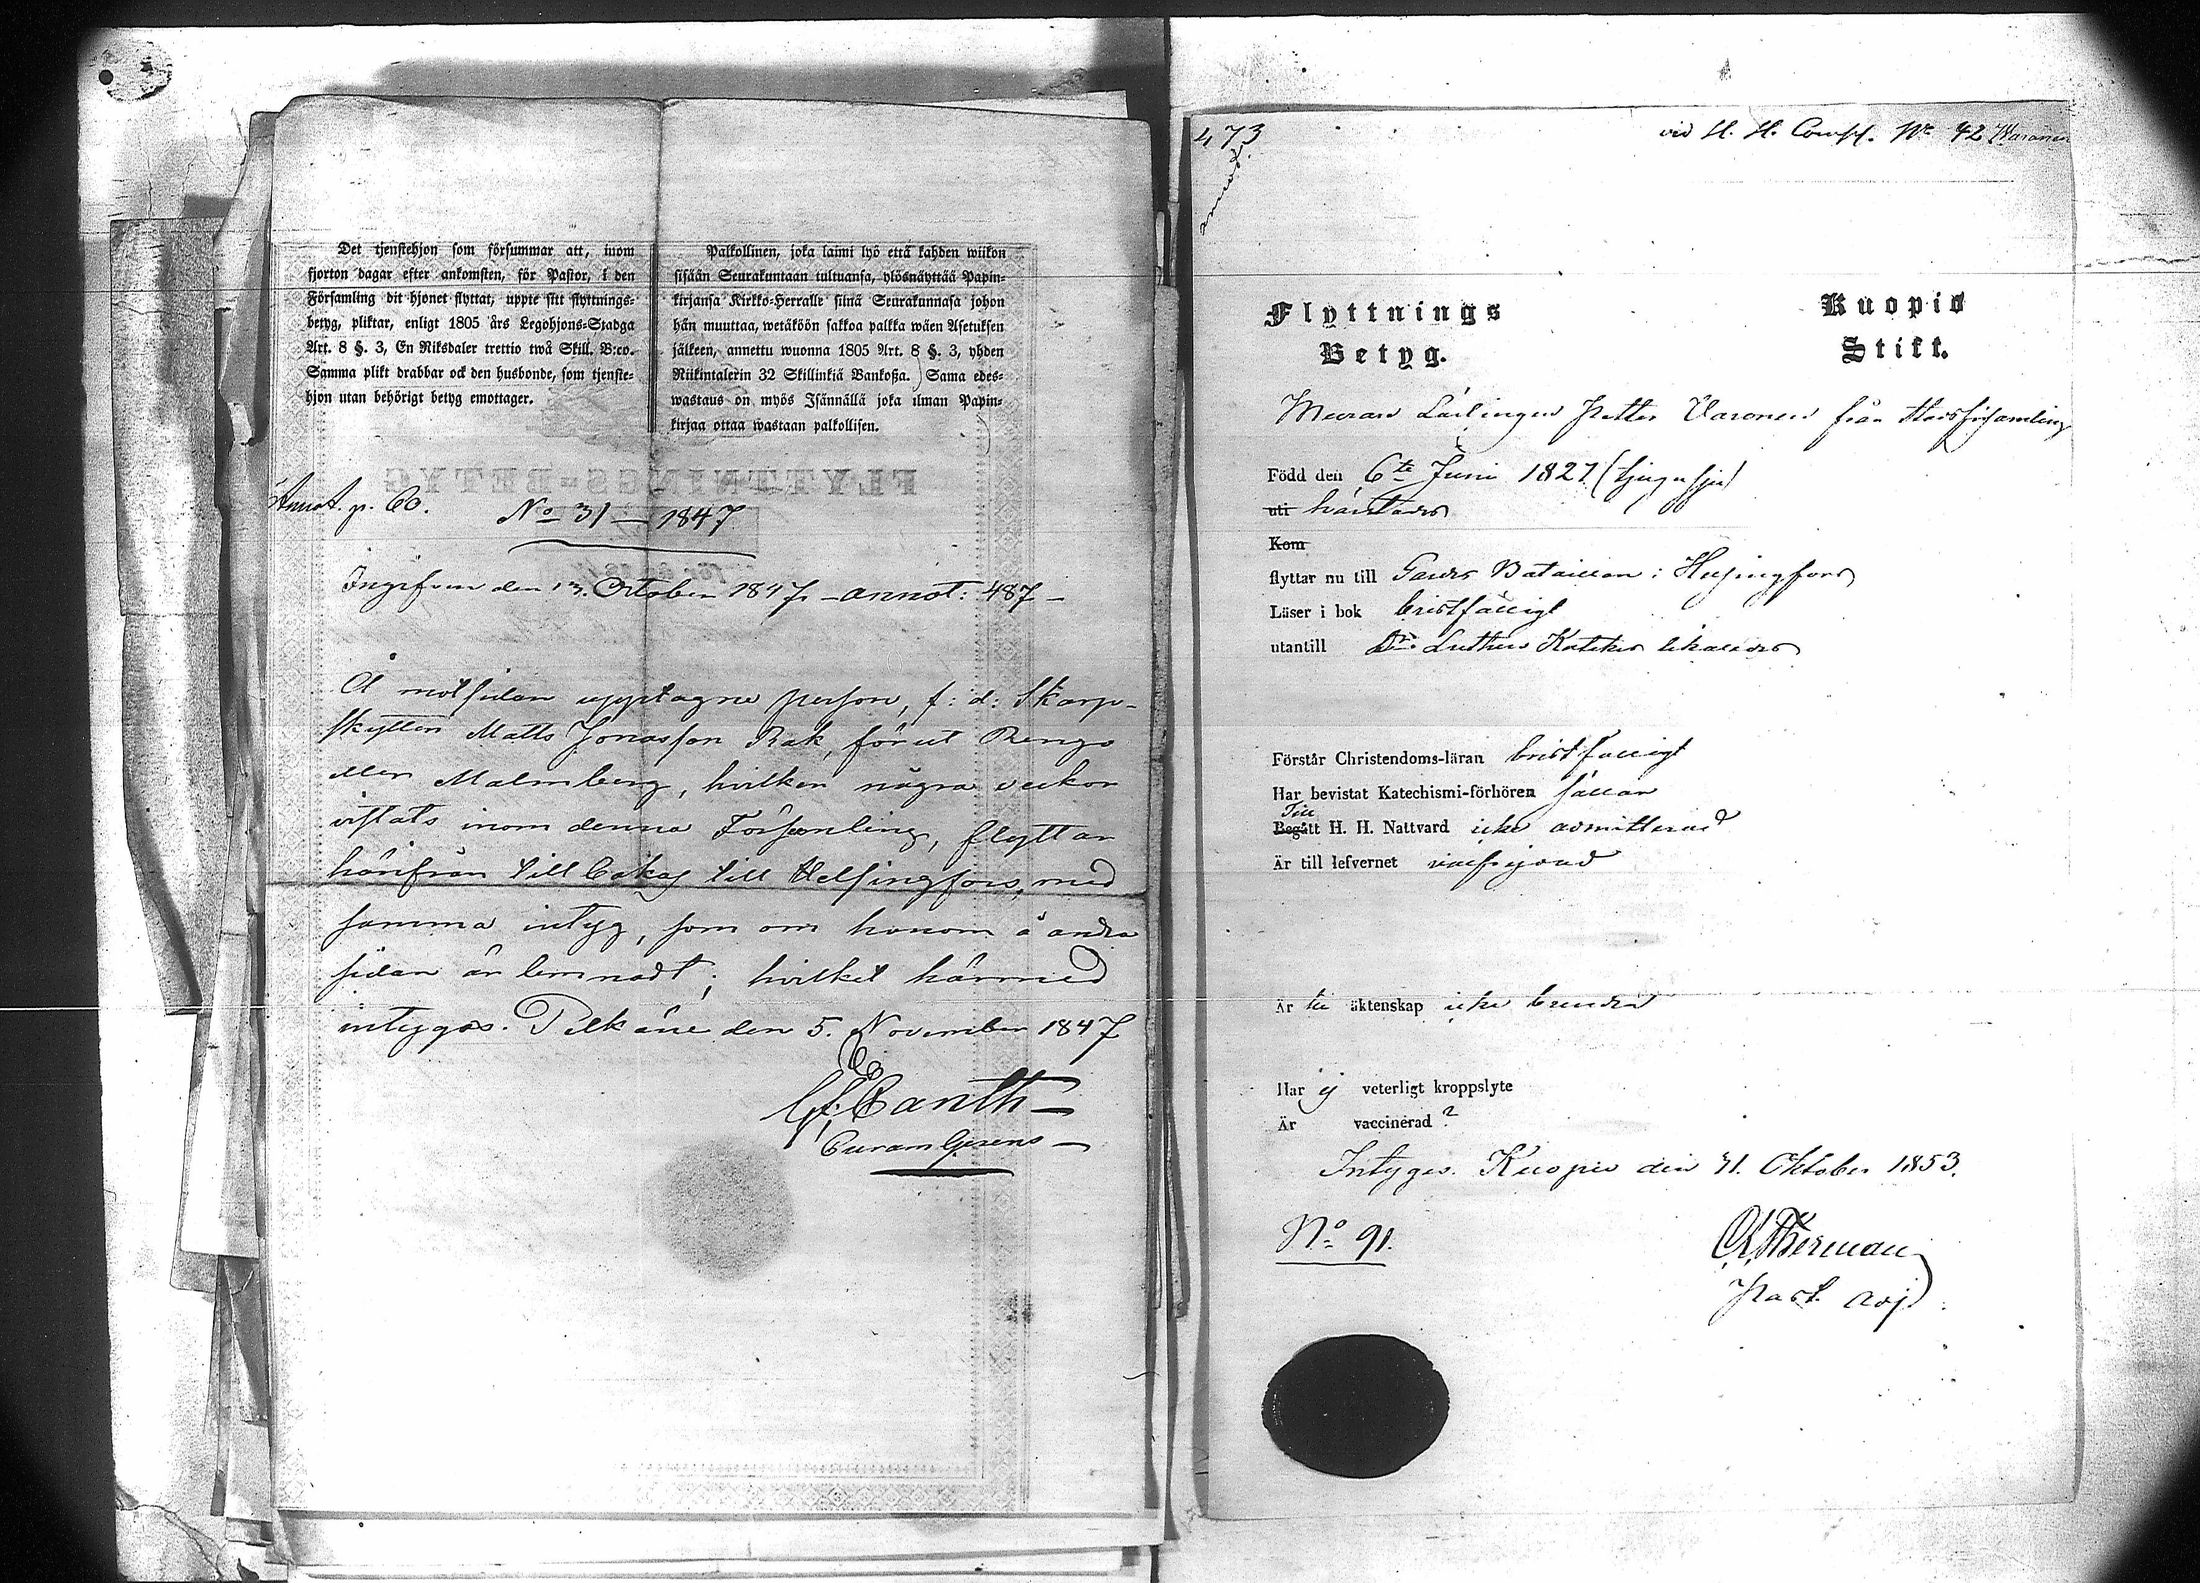 Det tjenstehjon som försummar att, inom
fjorton dagar efter ankomsten, för Pastor, i den
Församling dit hjonet flyttat, uppte sitt flyttnings-
betyg, pliktar, enligt 1805 års Legohjons-Stadga
Art. 8 §. 3, En Riksdaler trettio twå Skill. B:co.
Samma plikt drabbar ock den husbonde, som tjenste-
hjon utan behörigt betyg emottager.
Palkollinen, joka laimi lyö että kahden wiikon
sisään Seurakuntaan tultuansa, ylösnäyttää Papin-
kirjansa Kirkko-Herralle siinä Seurakunnasa johon
hän muuttaa, wetäköön sakkoa palkka wäen Asetuksen
jälkeen, annettu wuonna 1805 Art. 8 §. 3, yhden
Riikintalerin 32 Skillinkiä Bankoßa. Sama edes-
wastaus on myös Isännällä joka ilman Papin-
kirjaa ottaa wastaan palkollisen.
FLYTTNINGS-BETYG
Annot. p. 60.
No 31 — 1847
Ingifven den 13. October 1847. – annot: 487 –
Å motsidan upptagne person, f: d: Skarp-
skytten Matts Jonasson Rak, förut Rengo
eller Malmberg, hvilken några veckor
vistats inom denna Församling, flyttar
härifrån tillbakas till Helsingfors, med
samma intyg, som om honom å andra
sidan är lemnadt; hvilket härmed
intygas. Pelkäne den 5. November 1847
Canth
Curam Gerens
473
annot.
vid H. H. Comp. No 42 Waranen
Flyttnings
Betyg.
Kuopio
Stift.
Petter Varonen från
Född den 6te Juni 1827 (tjugusju)
uti härstädes
Kom
flyttar nu till Gardes Bataillon i Helsingfors
Läser i bok bristfälligt
utantill Dr. Luthers Kateches likaledes
Förstår Christendoms-läran bristfälligt
Har bevistat Katechismi-förhören sällan
Till
Begått H. H. Nattvard icke admitterad
Är till lefvernet vanfrejdad
Är till äktenskap icke bunden
Har ej veterligt kroppslyte
Är vaccinerad ?
Intygas. Kuopio den 31. Oktober 1853.
No 91.
Past. adj.